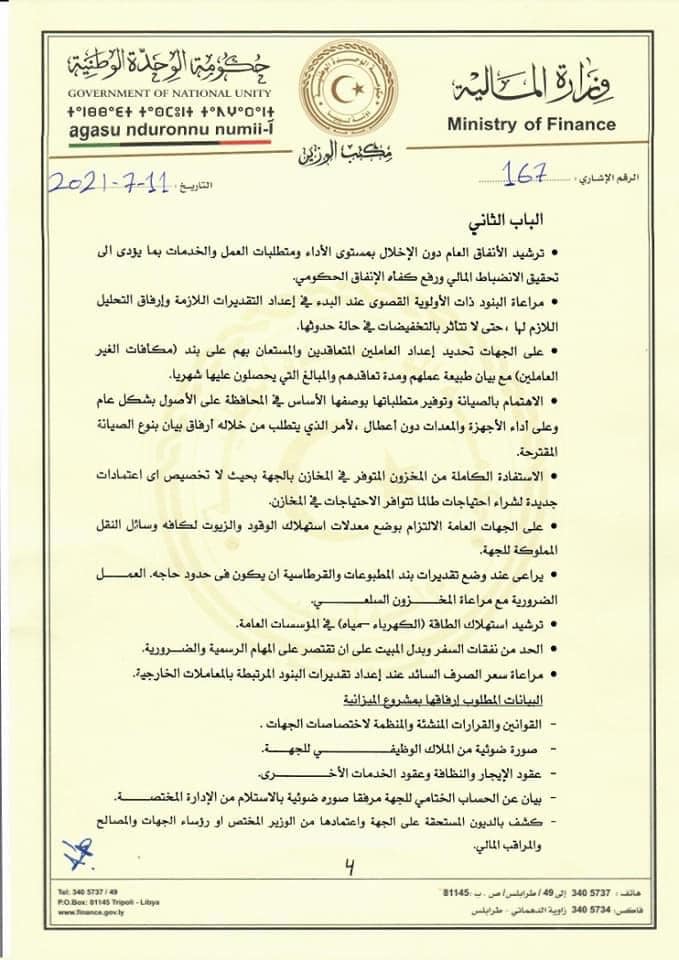 حكومة الوحدة الوطنية
GOVERNMENT OF NATIONAL UNITY
agasu nduronnu numii-آ
وزارة المالية
Ministry of Finance
مكتب الوزير
الرقم الإشاري: 167
التاريخ: 11-7-2021
الباب الثاني
• ترشيد الأنفاق العام دون الإخلال بمستوى الأداء ومتطلبات العمل والخدمات بما يؤدى الى
تحقيق الانضباط المالي ورفع كفاْه الإنفاق الحكومي.
• مراعاة البنود ذات الأولوية القصوى عند البدء في إعداد التقديرات اللازمة وإرفاق التحليل
اللازم لها ،حتى لا تتأثر بالتخفيضات في حالة حدوثها.
• على الجهات تحديد إعداد العاملين المتعاقدين والمستعان بهم على بند (مكافات الغير
العاملين) مع بيان طبيعة عملهم ومدة تعاقدهم والمبالغ التي يحصلون عليها شهريا.
• الاهتمام بالصيانة وتوفير متطلباتها بوصفها الأساس في المحافظة على الأصول بشكل عام
وعلى أداء الأجهزة والمعدات دون أعطال ،لأمر الذي يتطلب من خلاله أرفاق بيان بنوع الصيانة
المقترحة.
• الاستفادة الكاملة من المخزون المتوفر في المخازن بالجهة بحيث لا تخصيص اى اعتمادات
جديدة لشراء احتياجات طالما تتوافر الاحتياجات في المخازن.
• على الجهات العامة الالتزام بوضع معدلات استهلاك الوقود والزيوت لكافه وسائل النقل
المملوكة للجهة.
• يراعى عند وضع تقديرات بند المطبوعات والقرطاسية ان يكون فى حدود حاجه. العمـــــل
الضرورية مع مراعاة المخـــــزون السلعـــــــي.
• ترشيد استهلاك الطاقة (الكهرباء –مياه) في المؤسسات العامة.
• الحد من نفقات السفر وبدل المبيت على ان تقتصر على المهام الرسمية والضرورية.
• مراعاة سعر الصرف السائد عند إعداد تقديرات البنود المرتبطة بالمعاملات الخارجية.
البيانات المطلوب إرفاقها بمشروع الميزانية
- القوانين والقرارات المنشئة والمنظمة لاختصاصات الجهات .
- صورة ضوئية من الملاك الوظيفـــــــــي للجهـــــة.
- عقود الإيجار والنظافة وعقود الخدمات الأخـــــــرى.
- بيان عن الحساب الختامي للجهة مرفقا صوره ضوئية بالاستلام من الإدارة المختصـــــة.
- كشف بالديون المستحقة على الجهة واعتمادها من الوزير المختص او رؤساء الجهات والمصالح
والمراقب المالي.
4
هاتف : 5737 340 إلى 49 / طرابلس/ ص . ب :81145
فاكس: 5734 340 زاوية الدهماني - طرابلس
Tel: 340 5737 / 49
P.O.Box: 81145 Tripoli - Libya
www.finance.gov.ly